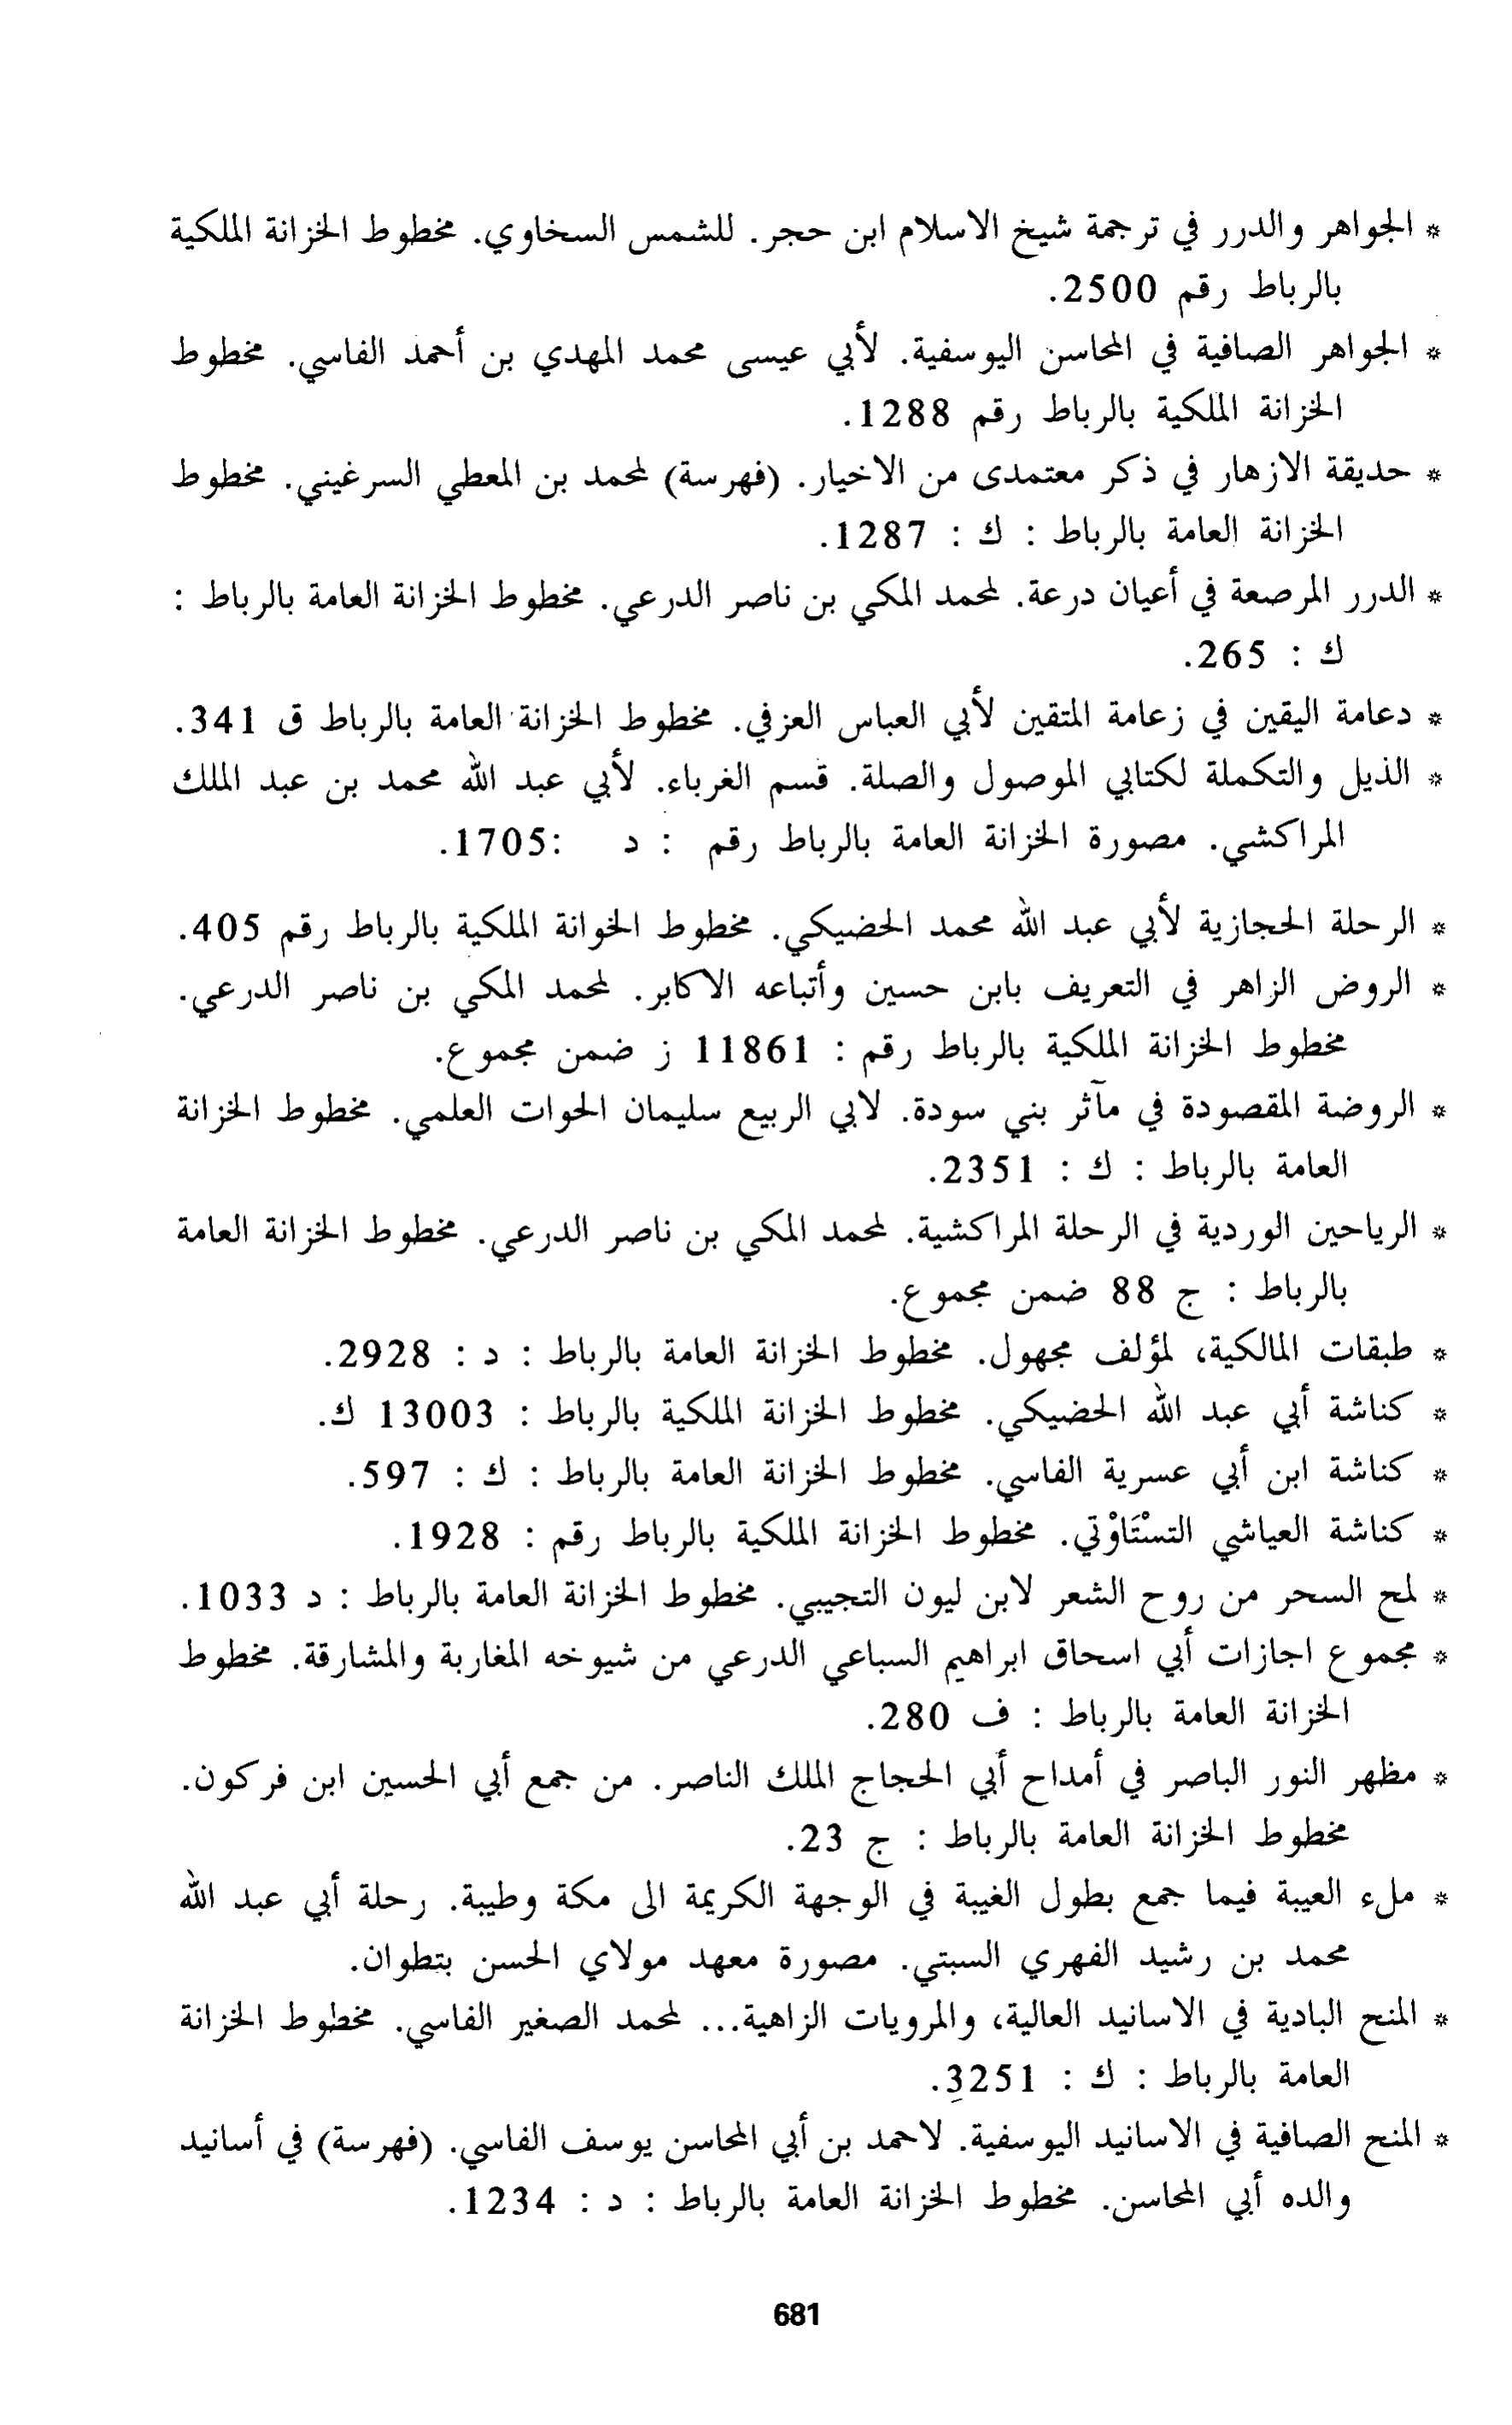 * الجواهر والدرر في ترجمة شيخ الاسلام ابن حجر. للشمس السخاوي. مخطوط الخزانة الملكية
بالرباط رقم 2500.
* الجواهر الصافية في المحاسن اليوسفية. لأبي عيسى محمد المهدي بن أحمد الفاسي. مخطوط
الخزانة الملكية بالرباط رقم 1288.
* حديقة الازهار في ذكر معتمدى من الاخيار. (فهرسة) لمحمد بن المعطي السرغيني. مخطوط
الخزانة العامة بالرباط : ك : 1287.
* الدرر المرصعة في أعيان درعة. لمحمد المكي بن ناصر الدرعي. مخطوط الخزانة العامة بالرباط :
ك : 265.
* دعامة اليقين في زعامة المتقين لأبي العباس العزفي. مخطوط الخزانة العامة بالرباط ق 341.
* الذيل والتكملة لكتابي الموصول والصلة. قسم الغرباء. لأبي عبد الله محمد بن عبد الملك
المراكشي. مصورة الخزانة العامة بالرباط رقم : د :1705.
* الرحلة الحجازية لأبي عبد الله محمد الحضيكي. مخطوط الخوانة الملكية بالرباط رقم 405.
* الروض الزاهر في التعريف بابن حسين وأتباعه الاكابر. لمحمد المكي بن ناصر الدرعي.
مخطوط الخزانة الملكية بالرباط رقم : 11861 ز ضمن مجموع.
* الروضة المقصودة في مآثر بني سودة. لابي الربيع سليمان الحوات العلمي. مخطوط الخزانة
العامة بالرباط : ك : 2351.
* الرياحين الوردية في الرحلة المراكشية. لمحمد المكي بن ناصر الدرعي. مخطوط الخزانة العامة
بالرباط : ج 88 ضمن مجموع.
* طبقات المالكية، لمؤلف مجهول. مخطوط الخزانة العامة بالرباط : د : 2928.
* كناشة أبي عبد الله الحضيكي. مخطوط الخزانة الملكية بالرباط : 13003 ك.
* كناشة ابن أبي عسرية الفاسي. مخطوط الخزانة العامة بالرباط : ك : 597.
* كناشة العياشي التستَاوْتي. مخطوط الخزانة الملكية بالرباط رقم : 1928.
* لمح السحر من روح الشعر لابن ليون التجيبي. مخطوط الخزانة العامة بالرباط : د 1033.
* مجموع اجازات أبي اسحاق ابراهيم السباعي الدرعي من شيوخه المغاربة والمشارقة. مخطوط
الخزانة العامة بالرباط : ف 280.
* مظهر النور الباصر في أمداح أبي الحجاج الملك الناصر. من جمع أبي الحسين ابن فركون.
مخطوط الخزانة العامة بالرباط : ج 23.
* ملء العيبة فيما جمع بطول الغيبة في الوجهة الكريمة الى مكة وطيبة. رحلة أبي عبد الله
محمد بن رشيد الفهري السبتي. مصورة معهد مولاي الحسن بتطوان.
* المنح البادية في الاسانيد العالية، والمرويات الزاهية... لمحمد الصغير الفاسي. مخطوط الخزانة
العامة بالرباط : ك : 3251.
* المنح الصافية في الاسانيد اليوسفية. لاحمد بن أبي المحاسن يوسف الفاسي. (فهرسة) في أسانيد
والده أبي المحاسن. مخطوط الخزانة العامة بالرباط : د : 1234.
681